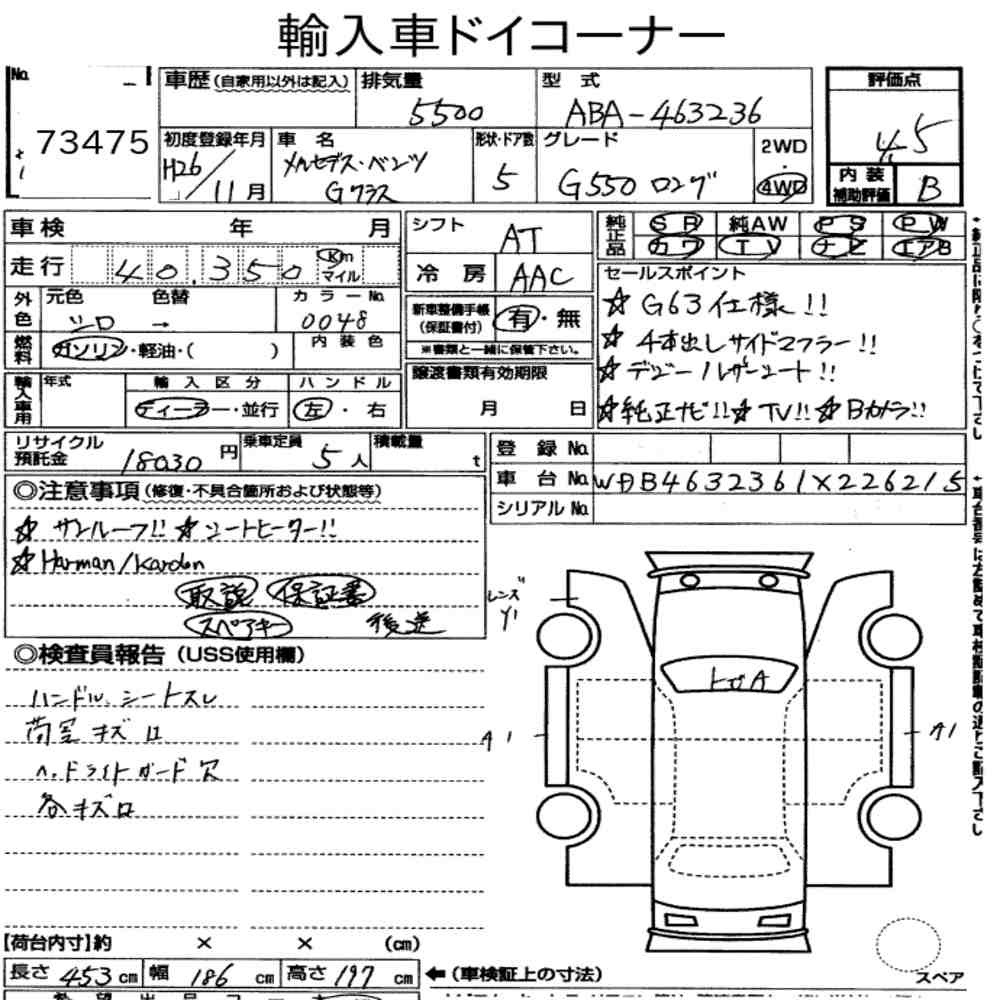 輸入車ドイコーナー
No.
73475
車歴(自家用以外は記入)
排気量
5500
型式
ABA-463236
評価点
4.5
初度登録年月
H26/11月
車名
メルセデス・ベンツ
Gクラス
形状・ドア数
5
グレード
G550 ロング
2WD
・
4WD
内装
補助評価
B
車検 年 月
シフト
AT
純正品
SR 純AW PS PW
カワ TV ナビ エアB
走行 40,350 Km
マイル
冷房
AAC
セールスポイント
☆ G63仕様!!
☆ 4本出しサイドマフラー!!
☆ デジーノレザーシート!!
☆純正ナビ!! ☆TV!! ☆Bカメラ!!
外色
元色 色替
シロ →
カラーNo.
0048
新車整備手帳
(保証書付)
有・無
※書類と一緒に保管下さい。
燃料
ガソリン・軽油・( )
内装色
譲渡書類有効期限
月 日
輸入車用
年式
輸入区分
ディーラー・並行
ハンドル
左・右
リサイクル
預託金
18030円
乗車定員
5人
積載量
t
登録No.
車台No.
WDB4632361X226215
シリアルNo.
◎注意事項(修復・不具合箇所および状態等)
☆ サンルーフ!! ☆ シートヒーター!!
☆ Harman/Kardon
取説 保証書
スペアキー 後送
レンズ
Y1
◎検査員報告(USS使用欄)
ハンドル、シートスレ
荷室キズロ
ヘッドライトガード穴
各キズロ
トビA
A1
A1
【荷台内寸】約 × × (cm)
長さ 453cm 幅 186cm 高さ 197cm
←(車検証上の寸法)
スペア